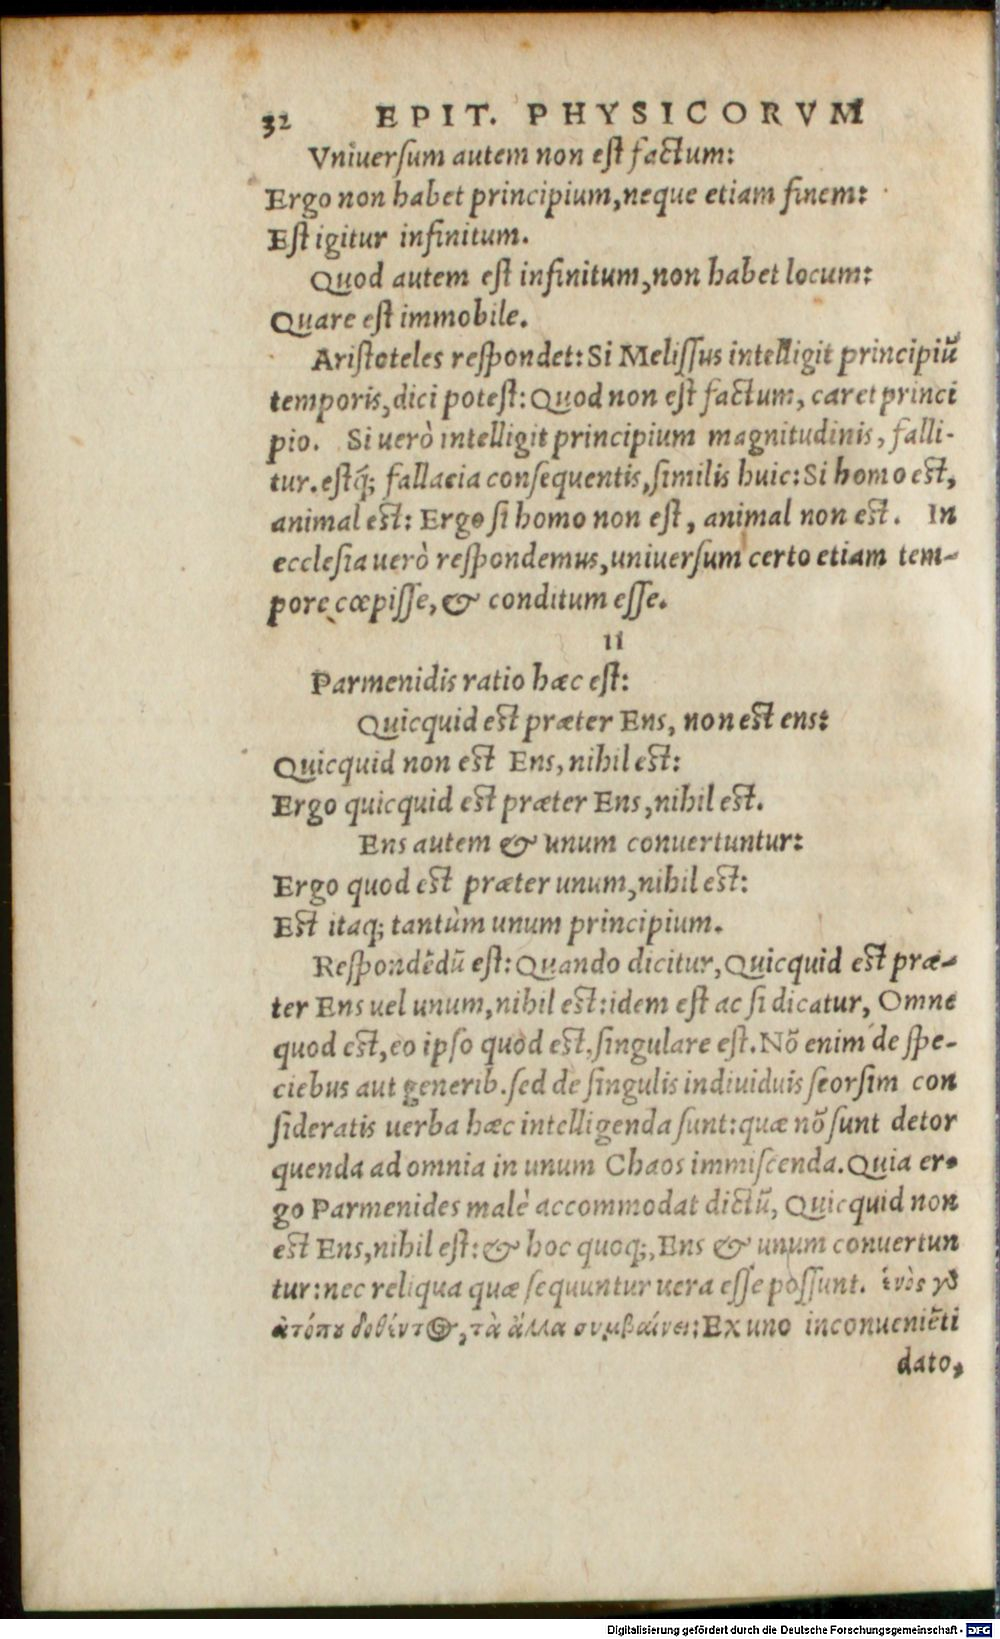 32 EPIT. PHYSICORVM
Vniuersum autem non est factum:
Ergo non habet principium, neque etiam finem:
Est igitur infinitum.
Quod autem est infinitum, non habet locum:
Quare est immobile.
Aristoteles respondet: Si Melissus intelligit principiũ
temporis, dici potest: Quod non est factum, caret princi
pio. Si uerò intelligit principium magnitudinis, falli-
tur. estq́; fallacia consequentis, similis huic: Si homo est,
animal est: Ergo si homo non est, animal non est. In
ecclesia uerò respondemus, uniuersum certo etiam tem-
pore cœpisse, & conditum esse.
II
Parmenidis ratio hæc est:
Quicquid est præter Ens, non est ens:
Quicquid non est Ens, nihil est:
Ergo quicquid est præter Ens, nihil est.
Ens autem & unum conuertuntur:
Ergo quod est præter unum, nihil est:
Est itaq; tantùm unum principium.
Respondẽdũ est: Quando dicitur, Quicquid est præ-
ter Ens uel unum, nihil est: idem est ac si dicatur, Omne
quod est, eo ipso quod est, singulare est. Nõ enim de spe-
ciebus aut generib. sed de singulis indiuiduis seorsim con
sideratis uerba hæc intelligenda sunt: quæ nõ sunt detor
quenda ad omnia in unum Chaos immiscenda. Quia er-
go Parmenides malè accommodat dictũ, Quicquid non
est Ens, nihil est: & hoc quoq;, Ens & unum conuertun
tur: nec reliqua quæ sequuntur uera esse possunt. ἑνὸς γὸ
ἀτόπȣ δοθέντ⊙, τὰ ἄλλα συμβαίνει: Ex uno inconueniẽti
dato,
Digitalisierung gefördert durch die Deutsche Forschungsgemeinschaft - DFG